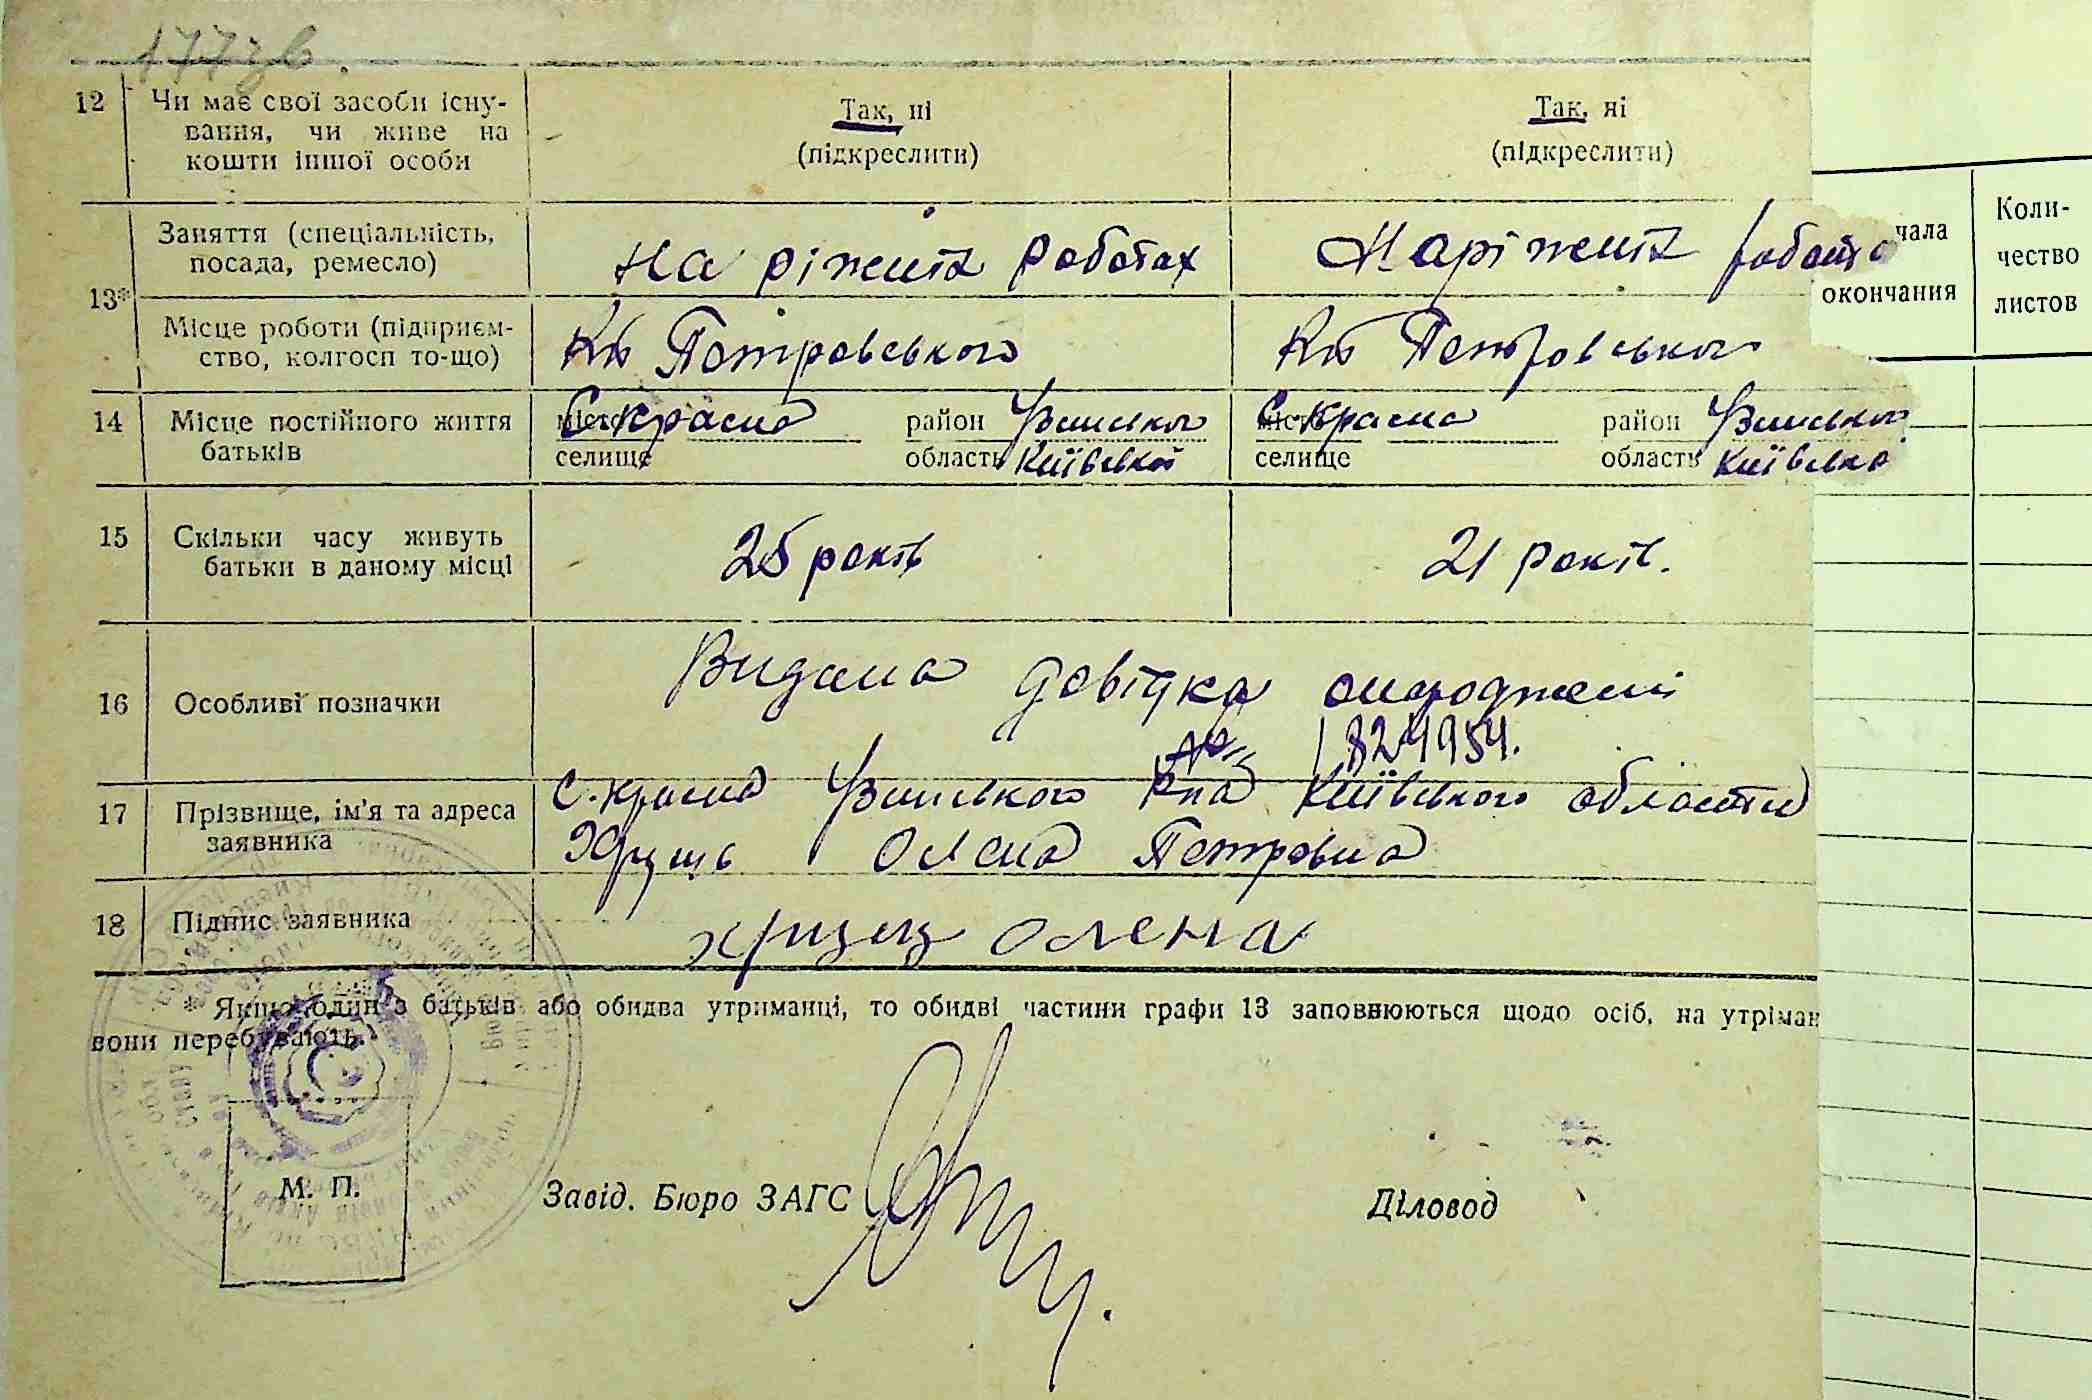 12 Чи має свої засоби існу-
вання, чи живе на
кошти іншої особи
Так, ні
(підкреслити)
Так, ні
(підкреслити)
13*
Заняття (спеціальність,
посада, ремесло)
На ріжних роботах
На ріжних робота
Місце роботи (підприєм-
ство, колгосп то-що)
Петровського
Петровського
14 Місце постійного життя
батьків
місто С Красна район
селище область Київської
місто С Красна район
селище область Київська
15 Скільки часу живуть
батьки в даному місці
25 років
21 років.
16 Особливі позначки
Видана довідка
№ 1824954.
17 Прізвище, ім'я та адреса
заявника
с. Красна Р-на Київського области
Хрущь Олена Петровна
18 Підпис заявника
хрущ олена
* Якщо один з батьків або обидва утриманці, то обидві частини графи 13 заповнюються щодо осіб, на утриман
вони перебувають.
М. П.
Завід. Бюро ЗАГС
Діловод
чала
окончания
Коли-
чество
листов